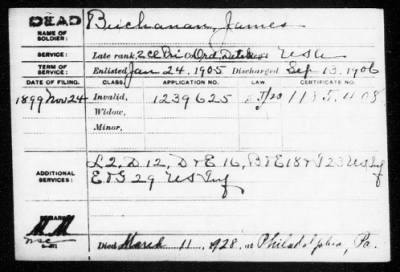 DEAD
NAME OF SOLDIER:
Buchanan, James
SERVICE:
Late rank, 2 Cl Pri Ord Detch US A
TERM OF SERVICE:
Enlisted Jan 24, 1905 Discharged Sep 13, 1906
DATE OF FILING. CLASS. APPLICATION NO. LAW. CERTIFICATE NO.
1899 Nov 24 Invalid, 1239625 1135408
Widow,
Minor,
ADDITIONAL SERVICES:
L 2, D 12, D & E 16, B & E 18 & I 23 US Inf
E & G 29 US Inf
REMARKS:
Died March 11, 1928, at Philadelphia, Pa.